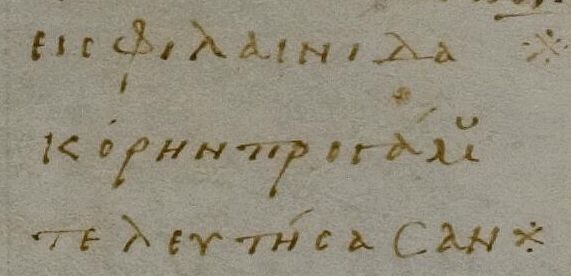 εις φιλαινιδα ※
κόρην προ γάμου
τελευτήσασαν ※